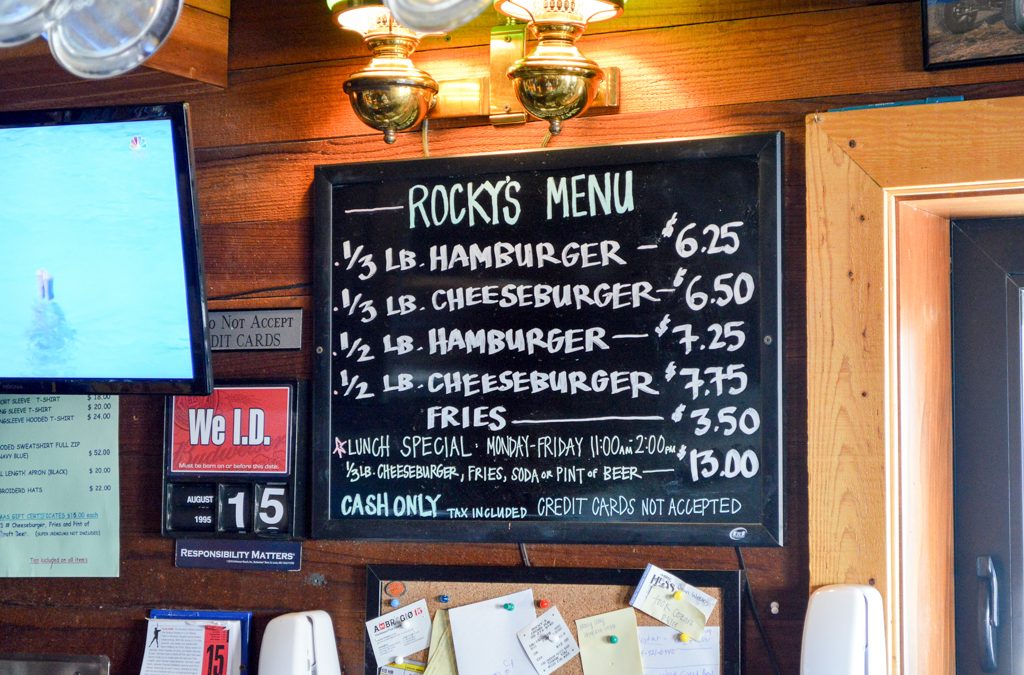 ROCKY'S MENU
1/3 LB. HAMBURGER — $6.25
1/3 LB. CHEESEBURGER — $6.50
1/2 LB. HAMBURGER — $7.25
1/2 LB. CHEESEBURGER $7.75
FRIES — $3.50
LUNCH SPECIAL: MONDAY-FRIDAY 11:00AM 2:00PM $13.00
1/3 LB. CHEESEBURGER, FRIES, SODA OR PINT OF BEER —
CASH ONLY TAX INCLUDED CREDIT CARDS NOT ACCEPTED
Lite
NOT ACCEPT
CARDS
We I.D.
Must be born on or before this date.
AUGUST 15
1995
RESPONSIBILITY MATTERS
SLEEVE T-SHIRT $ 18.00
SLEEVE T-SHIRT $ 20.00
HOODED T-SHIRT $ 24.00
SWEATSHIRT FULL ZIP
$ 52.00
LENGTH APRON (BLACK) $ 20.00
HATS $ 22.00
GIFT CERTIFICATES $18.00 each
Cheeseburger, Fries and Pint of
Beer.
Tax included on all items
15